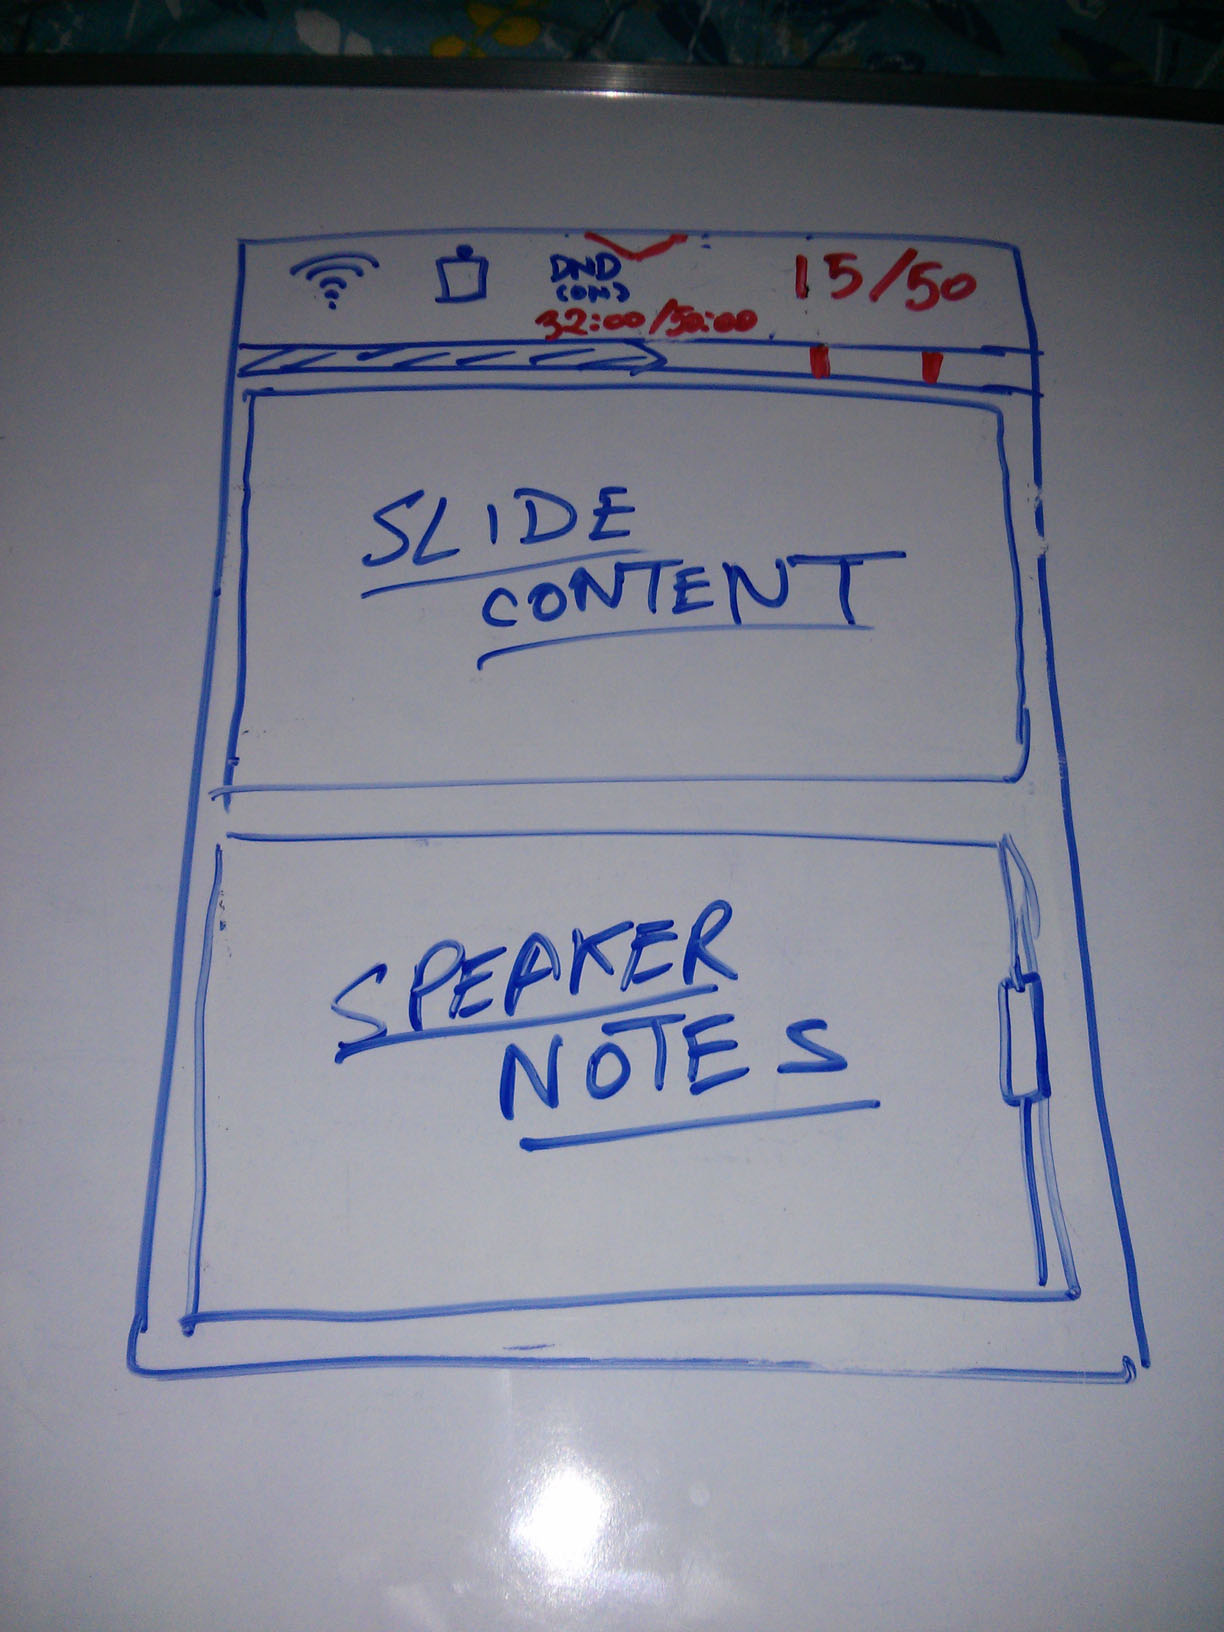 DND
(ON)
32:00/50:00
15/50
SLIDE
CONTENT
SPEAKER
NOTES